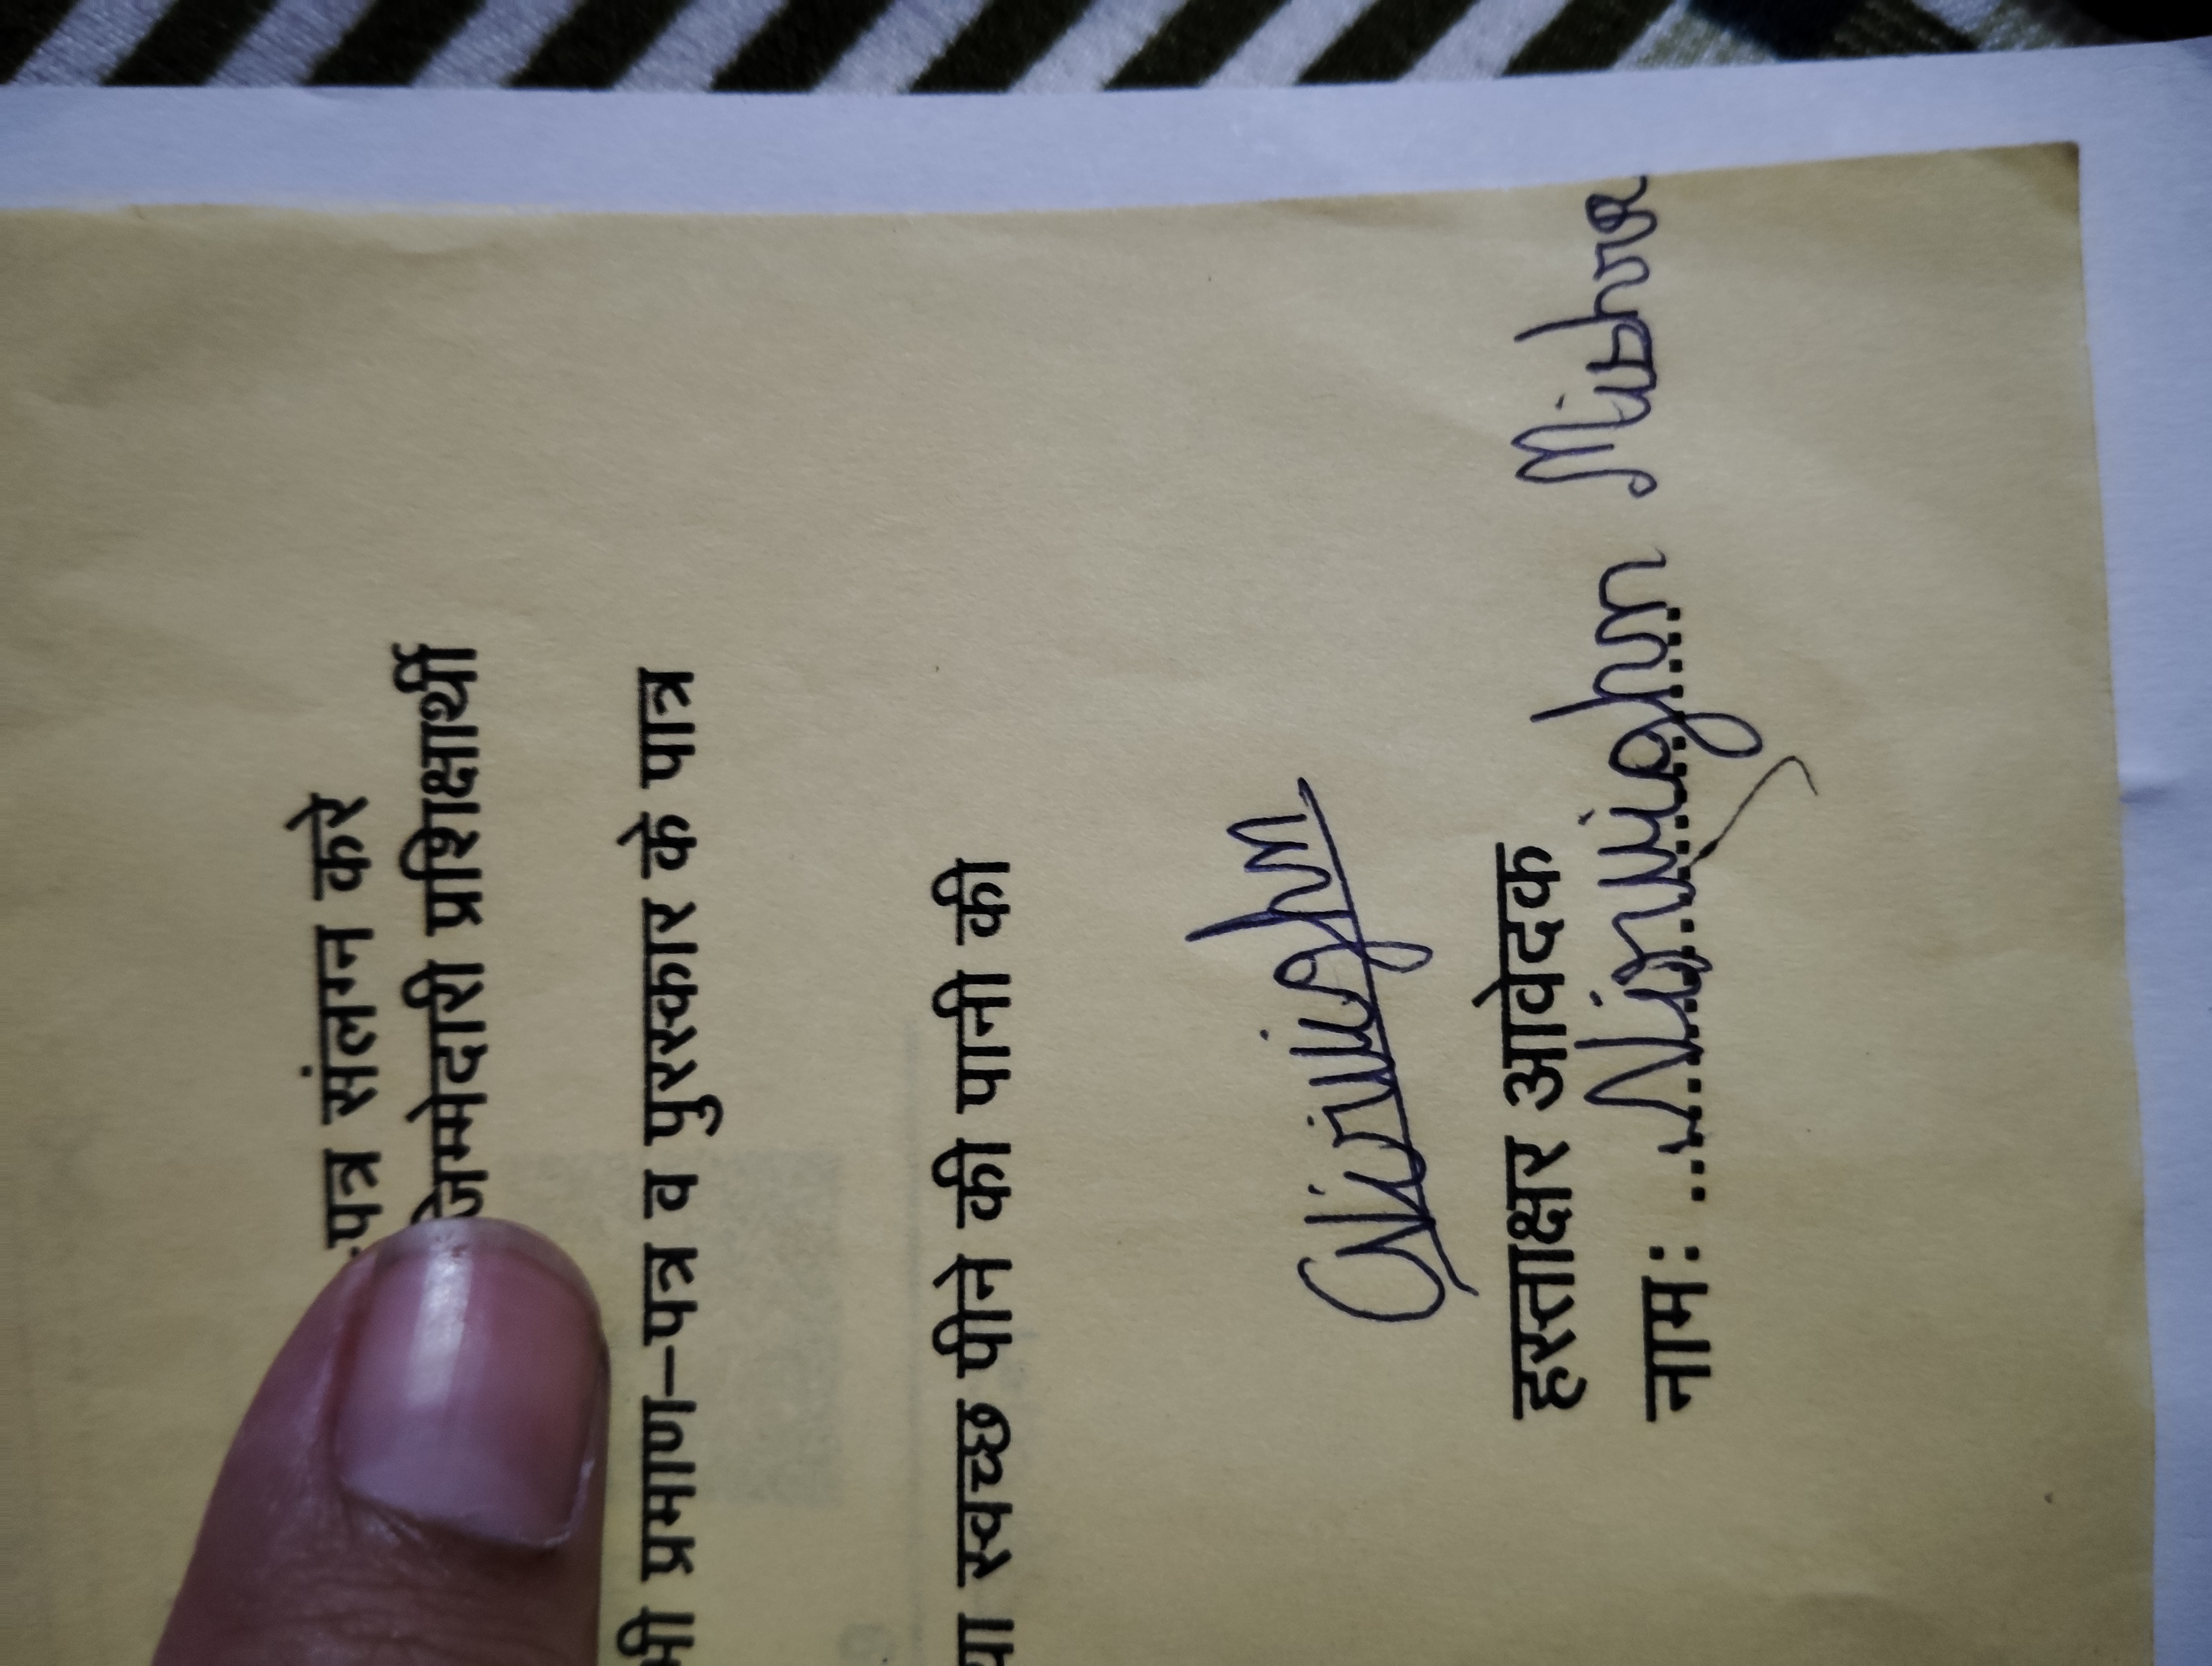 पत्र संलग्न करे
जिम्मेदारी प्रशिक्षार्थी
भी प्रमाण-पत्र व पुरस्कार के पात्र
था स्वच्छ पीने की पानी की
हस्ताक्षर आवेदक
नाम: Mishra